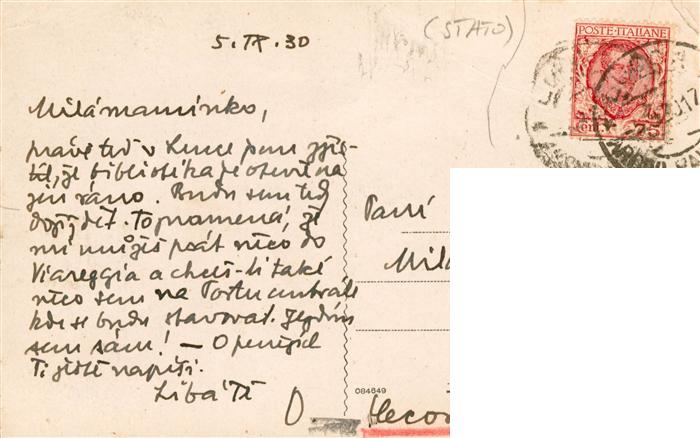 5. IX. 30
(STATO)
POSTE ITALIANE
75
Milá maminko,
právě teď v Lucce jsem zjis-
til, že bibliotéka je otevřena
jen ráno. Budu sem teď
dojíždět. To znamená, že
mi můžeš psát něco do
Viareggia a chceš-li také
něco sem na Postu centrále
kde se budu stavovat. Jezdím
sem sám! — O penězích
Ti ještě napíši.
Líbá Tě
Paní
Mil
084649